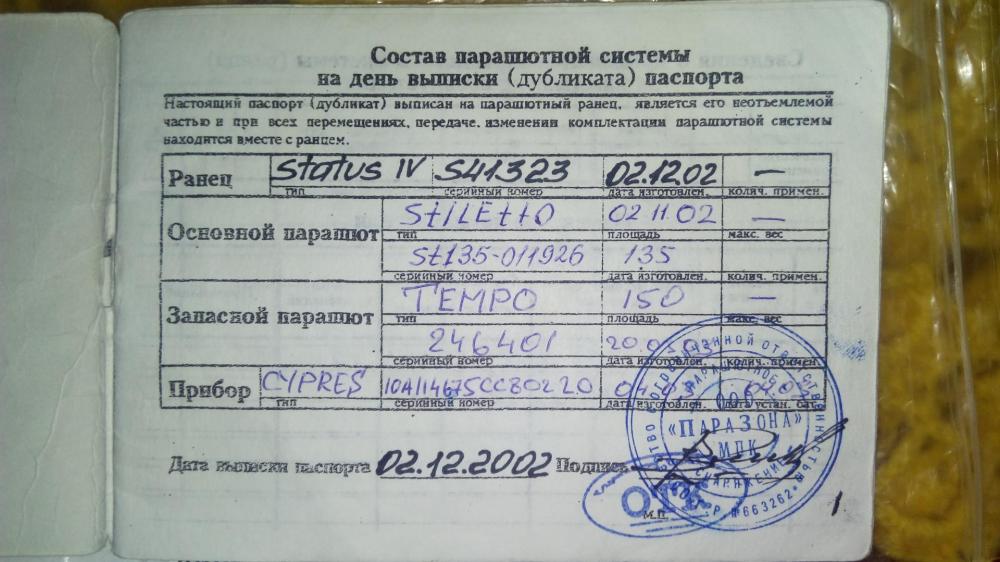 Состав парашютной системы
на день выписки (дубликата) паспорта
Настоящий паспорт (дубликат) выписан на парашютный ранец, является его неотъемлемой
частью и при всех перемещениях, передаче, изменении комплектации парашютной системы
находится вместе с ранцем.
Ранец Status IV S41323 02.12.02 —
тип серийный номер дата изготовлен. колич. примен.
Основной парашют StILEttO 02 11.02 —
тип площадь макс. вес
St135-011926 135
серийный номер дата изготовлен. колич. примен.
Запасной парашют TEMPO 150 —
тип площадь макс. вес
246401 20.0
серийный номер дата изготовлен. колич. примен.
Прибор CYPRES 10A114675CC80220
тип серийный номер дата изготовлен. дата устан. бат.
ООО
«ПАРАЗОНА»
МПК
СНАРЯЖЕНИЕ
Р.№663262
Дата выписки паспорта 02.12.2002 Подпись
ОТК
М.П.
1